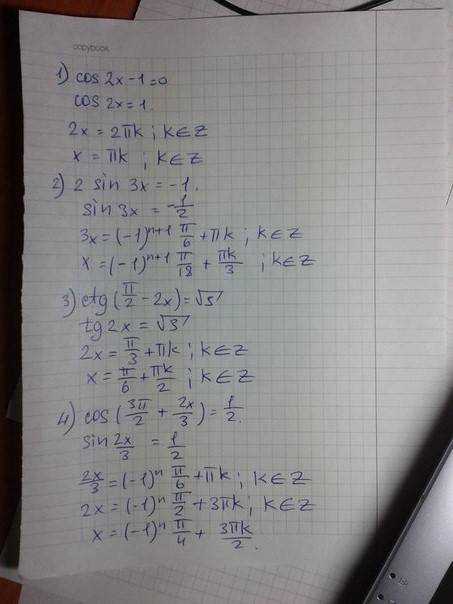 copybook
1) cos 2x - 1 = 0
cos 2x = 1.
2x = 2πk ; k ∈ Z
x = πk ; k ∈ Z
2) 2 sin 3x = -1.
sin 3x = -1/2
3x = (-1)ⁿ⁺¹ π/6 + πk ; k ∈ Z
x = (-1)ⁿ⁺¹ π/18 + πk/3 ; k ∈ Z
3) ctg (π/2 - 2x) = √3
tg 2x = √3
2x = π/3 + πk ; k ∈ Z
x = π/6 + πk/2 ; k ∈ Z
4) cos (3π/2 + 2x/3) = 1/2.
sin 2x/3 = 1/2
2x/3 = (-1)ⁿ π/6 + πk ; k ∈ Z
2x = (-1)ⁿ π/2 + 3πk ; k ∈ Z
x = (-1)ⁿ π/4 + 3πk/2.